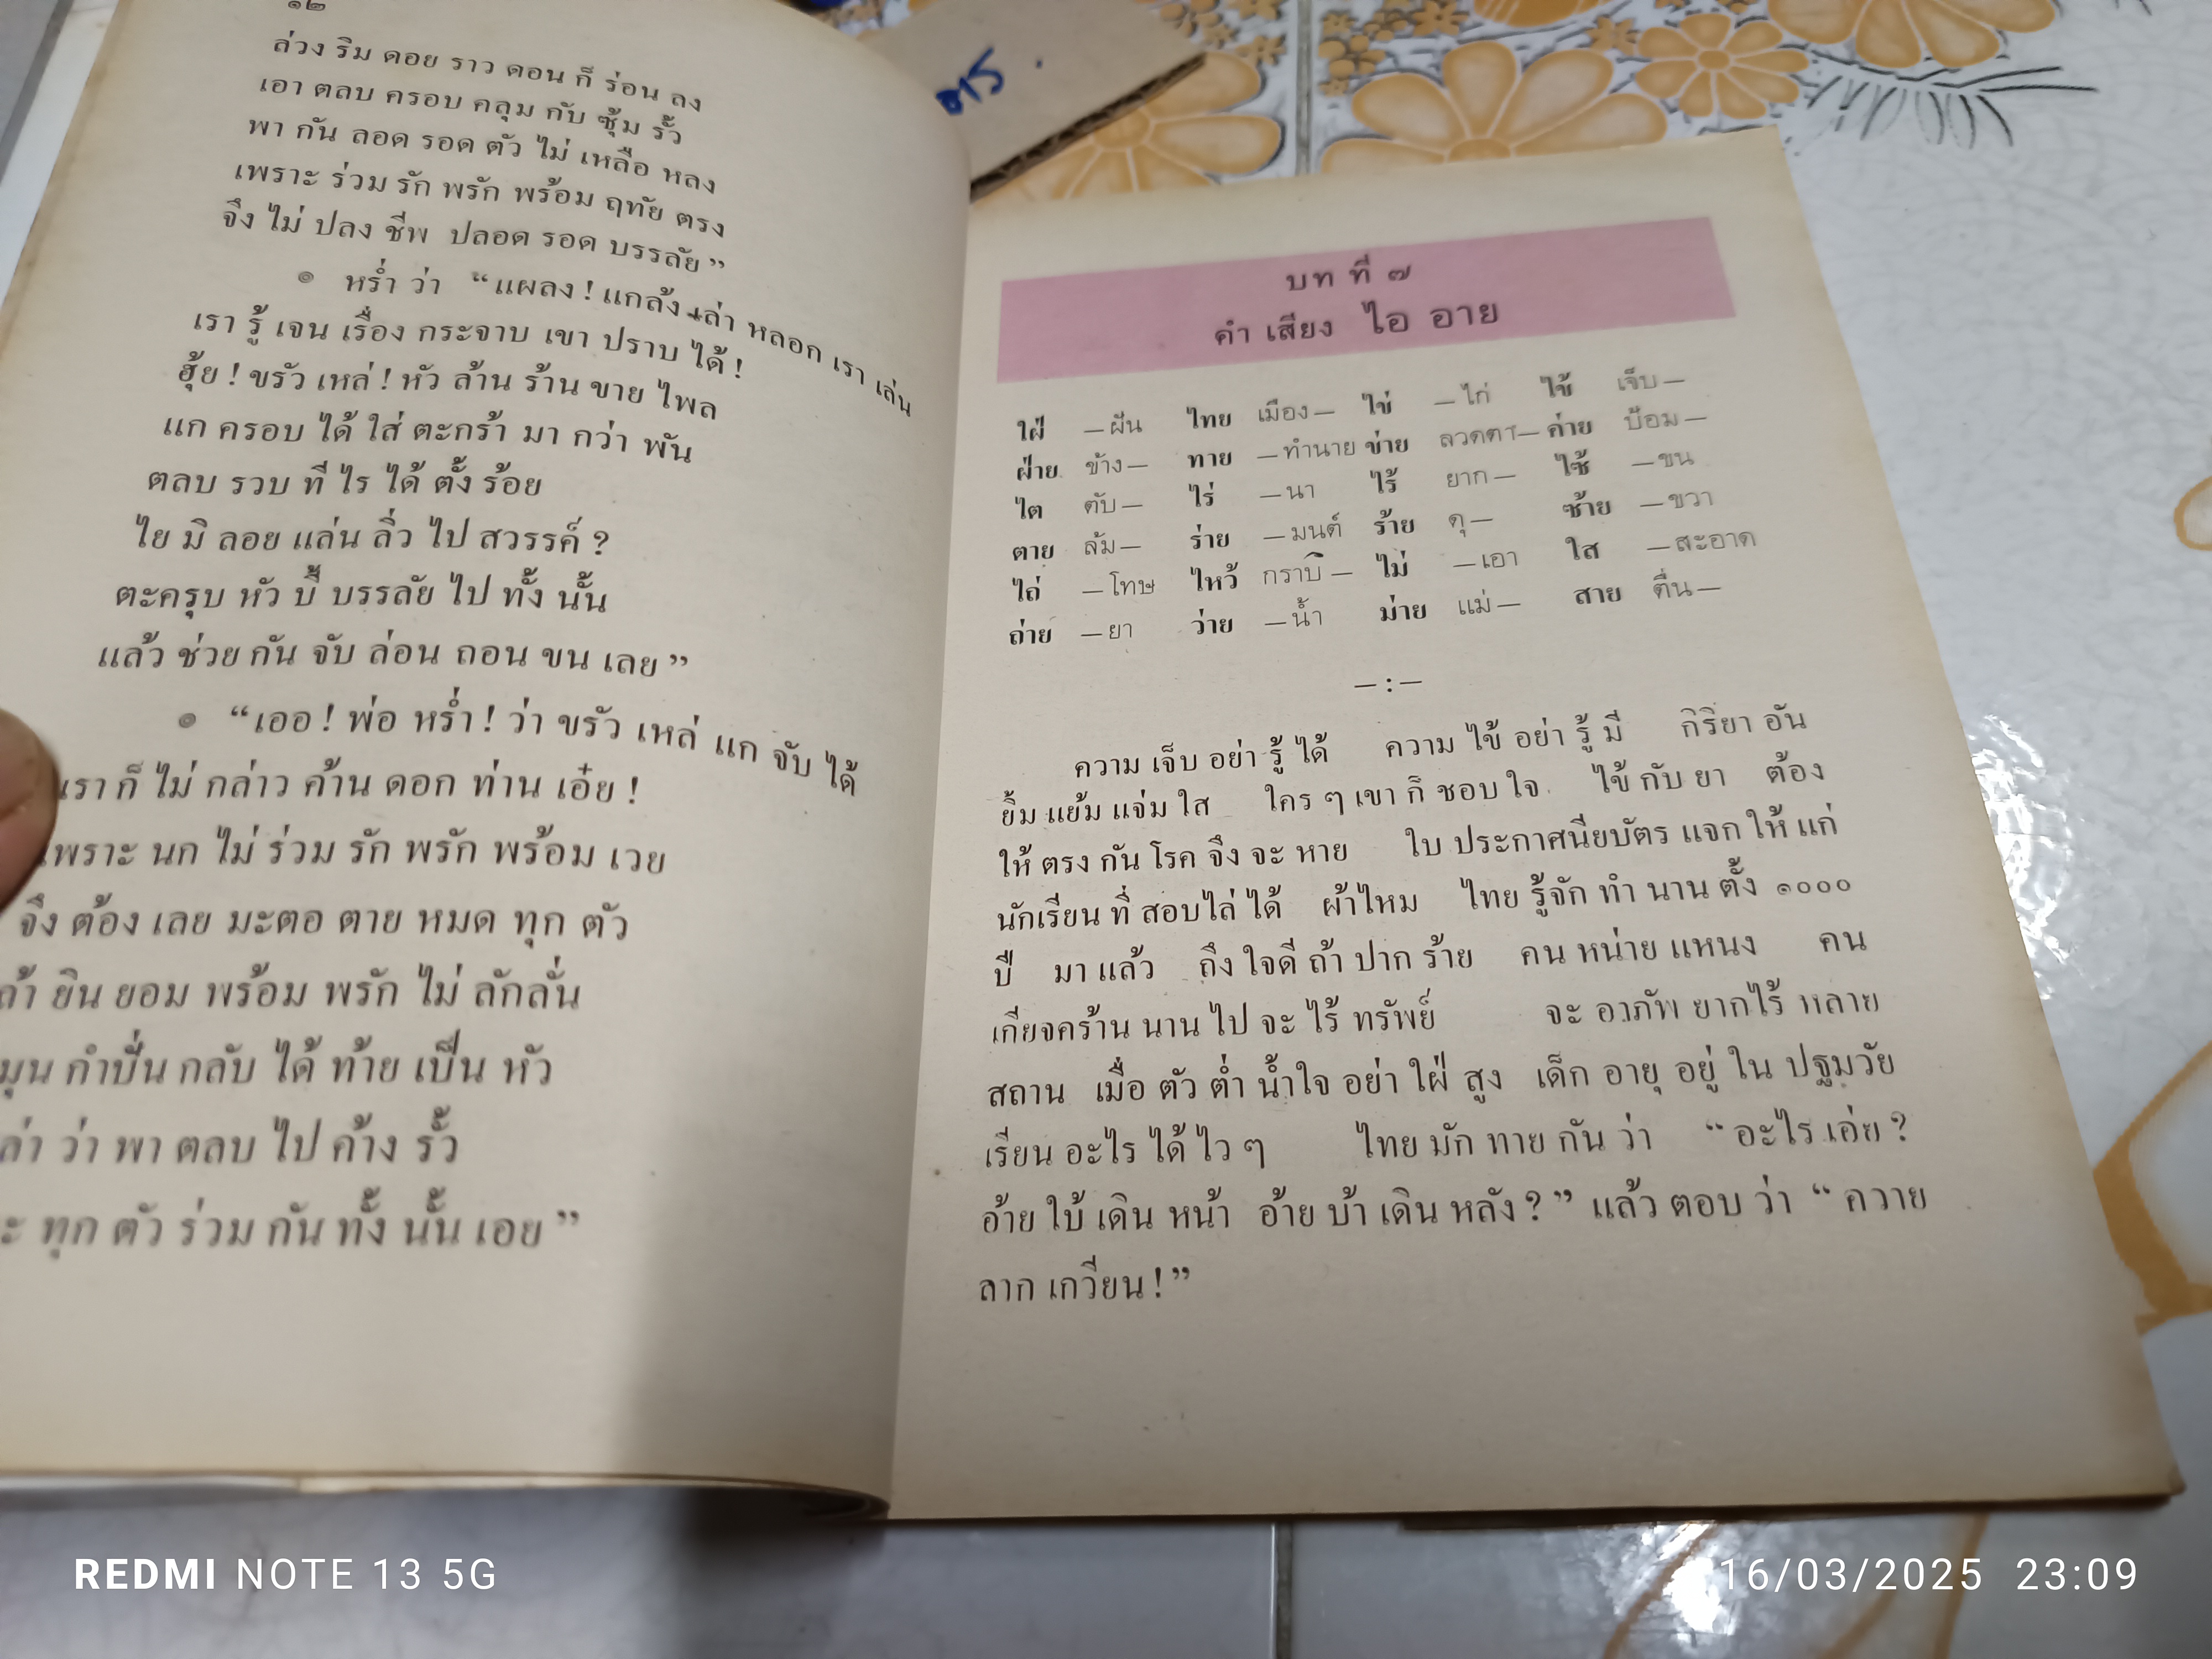 ๑๒
ล่วง ริม ดอย ราว ดอน ก็ ร่อน ลง
เอา ตลบ ครอบ คลุม กับ ซุ้ม รั้ว
พา กัน ลอด รอด ตัว ไม่ เหลือ หลง
เพราะ ร่วม รัก พรัก พร้อม ฤทัย ตรง
จึง ไม่ ปลง ชีพ ปลอด รอด บรรลัย”
๏ หร่ำ ว่า “แผลง ! แกล้ง เล่า หลอก เรา เล่น
เรา รู้ เจน เรื่อง กระจาบ เขา ปราบ ได้ !
ฮุ้ย ! ขรัว เหล่ ! หัว ล้าน ร้าน ขาย ไพล
แก ครอบ ได้ ใส่ ตะกร้า มา กว่า พัน
ตลบ รวบ ที ไร ได้ ตั้ง ร้อย
ไย มิ ลอย แล่น ลิ่ว ไป สวรรค์ ?
ตะครุบ หัว บี้ บรรลัย ไป ทั้ง นั้น
แล้ว ช่วย กัน จับ ล่อน ถอน ขน เลย”
๏ “เออ ! พ่อ หร่ำ ! ว่า ขรัว เหล่ แก จับ ได้
เรา ก็ ไม่ กล่าว ค้าน ดอก ท่าน เอ๋ย !
เพราะ นก ไม่ ร่วม รัก พรัก พร้อม เวย
จึง ต้อง เลย มะตอ ตาย หมด ทุก ตัว
ถ้า ยิน ยอม พร้อม พรัก ไม่ ลักลั่น
มุน กำปั่น กลับ ได้ ท้าย เป็น หัว
ล่า ว่า พา ตลบ ไป ค้าง รั้ว
ะ ทุก ตัว ร่วม กัน ทั้ง นั้น เอย”
บท ที่ ๗
คำ เสียง ไอ อาย
ใฝ่ —ฝัน ไทย เมือง— ไข่ —ไก่ ไข้ เจ็บ—
ฝ่าย ข้าง— ทาย —ทำนาย ข่าย ลวดตา— ค่าย ป้อม—
ไต ตับ— ไร่ —นา ไร้ ยาก— ไซ้ —ขน
ตาย ล้ม— ร่าย —มนต์ ร้าย ดุ— ซ้าย —ขวา
ไถ่ —โทษ ไหว้ กราบ— ไม่ —เอา ใส —สะอาด
ถ่าย —ยา ว่าย —น้ำ ม่าย แม่— สาย ตื่น—
—:—
ความ เจ็บ อย่า รู้ ได้ ความ ไข้ อย่า รู้ มี กิริยา อัน
ยิ้ม แย้ม แจ่ม ใส ใคร ๆ เขา ก็ ชอบ ใจ ไข้ กับ ยา ต้อง
ให้ ตรง กัน โรค จึง จะ หาย ใบ ประกาศนียบัตร แจก ให้ แก่
นักเรียน ที่ สอบไล่ ได้ ผ้าไหม ไทย รู้จัก ทำ นาน ตั้ง ๑๐๐๐
ปี มา แล้ว ถึง ใจดี ถ้า ปาก ร้าย คน หน่าย แหนง คน
เกียจคร้าน นาน ไป จะ ไร้ ทรัพย์ จะ อาภัพ ยากไร้ หลาย
สถาน เมื่อ ตัว ต่ำ น้ำใจ อย่า ใฝ่ สูง เด็ก อายุ อยู่ ใน ปฐมวัย
เรียน อะไร ได้ ไว ๆ ไทย มัก ทาย กัน ว่า “อะไร เอ่ย ?
อ้าย ใบ้ เดิน หน้า อ้าย บ้า เดิน หลัง ?” แล้ว ตอบ ว่า “ควาย
ลาก เกวียน !”
REDMI NOTE 13 5G
16/03/2025 23:09